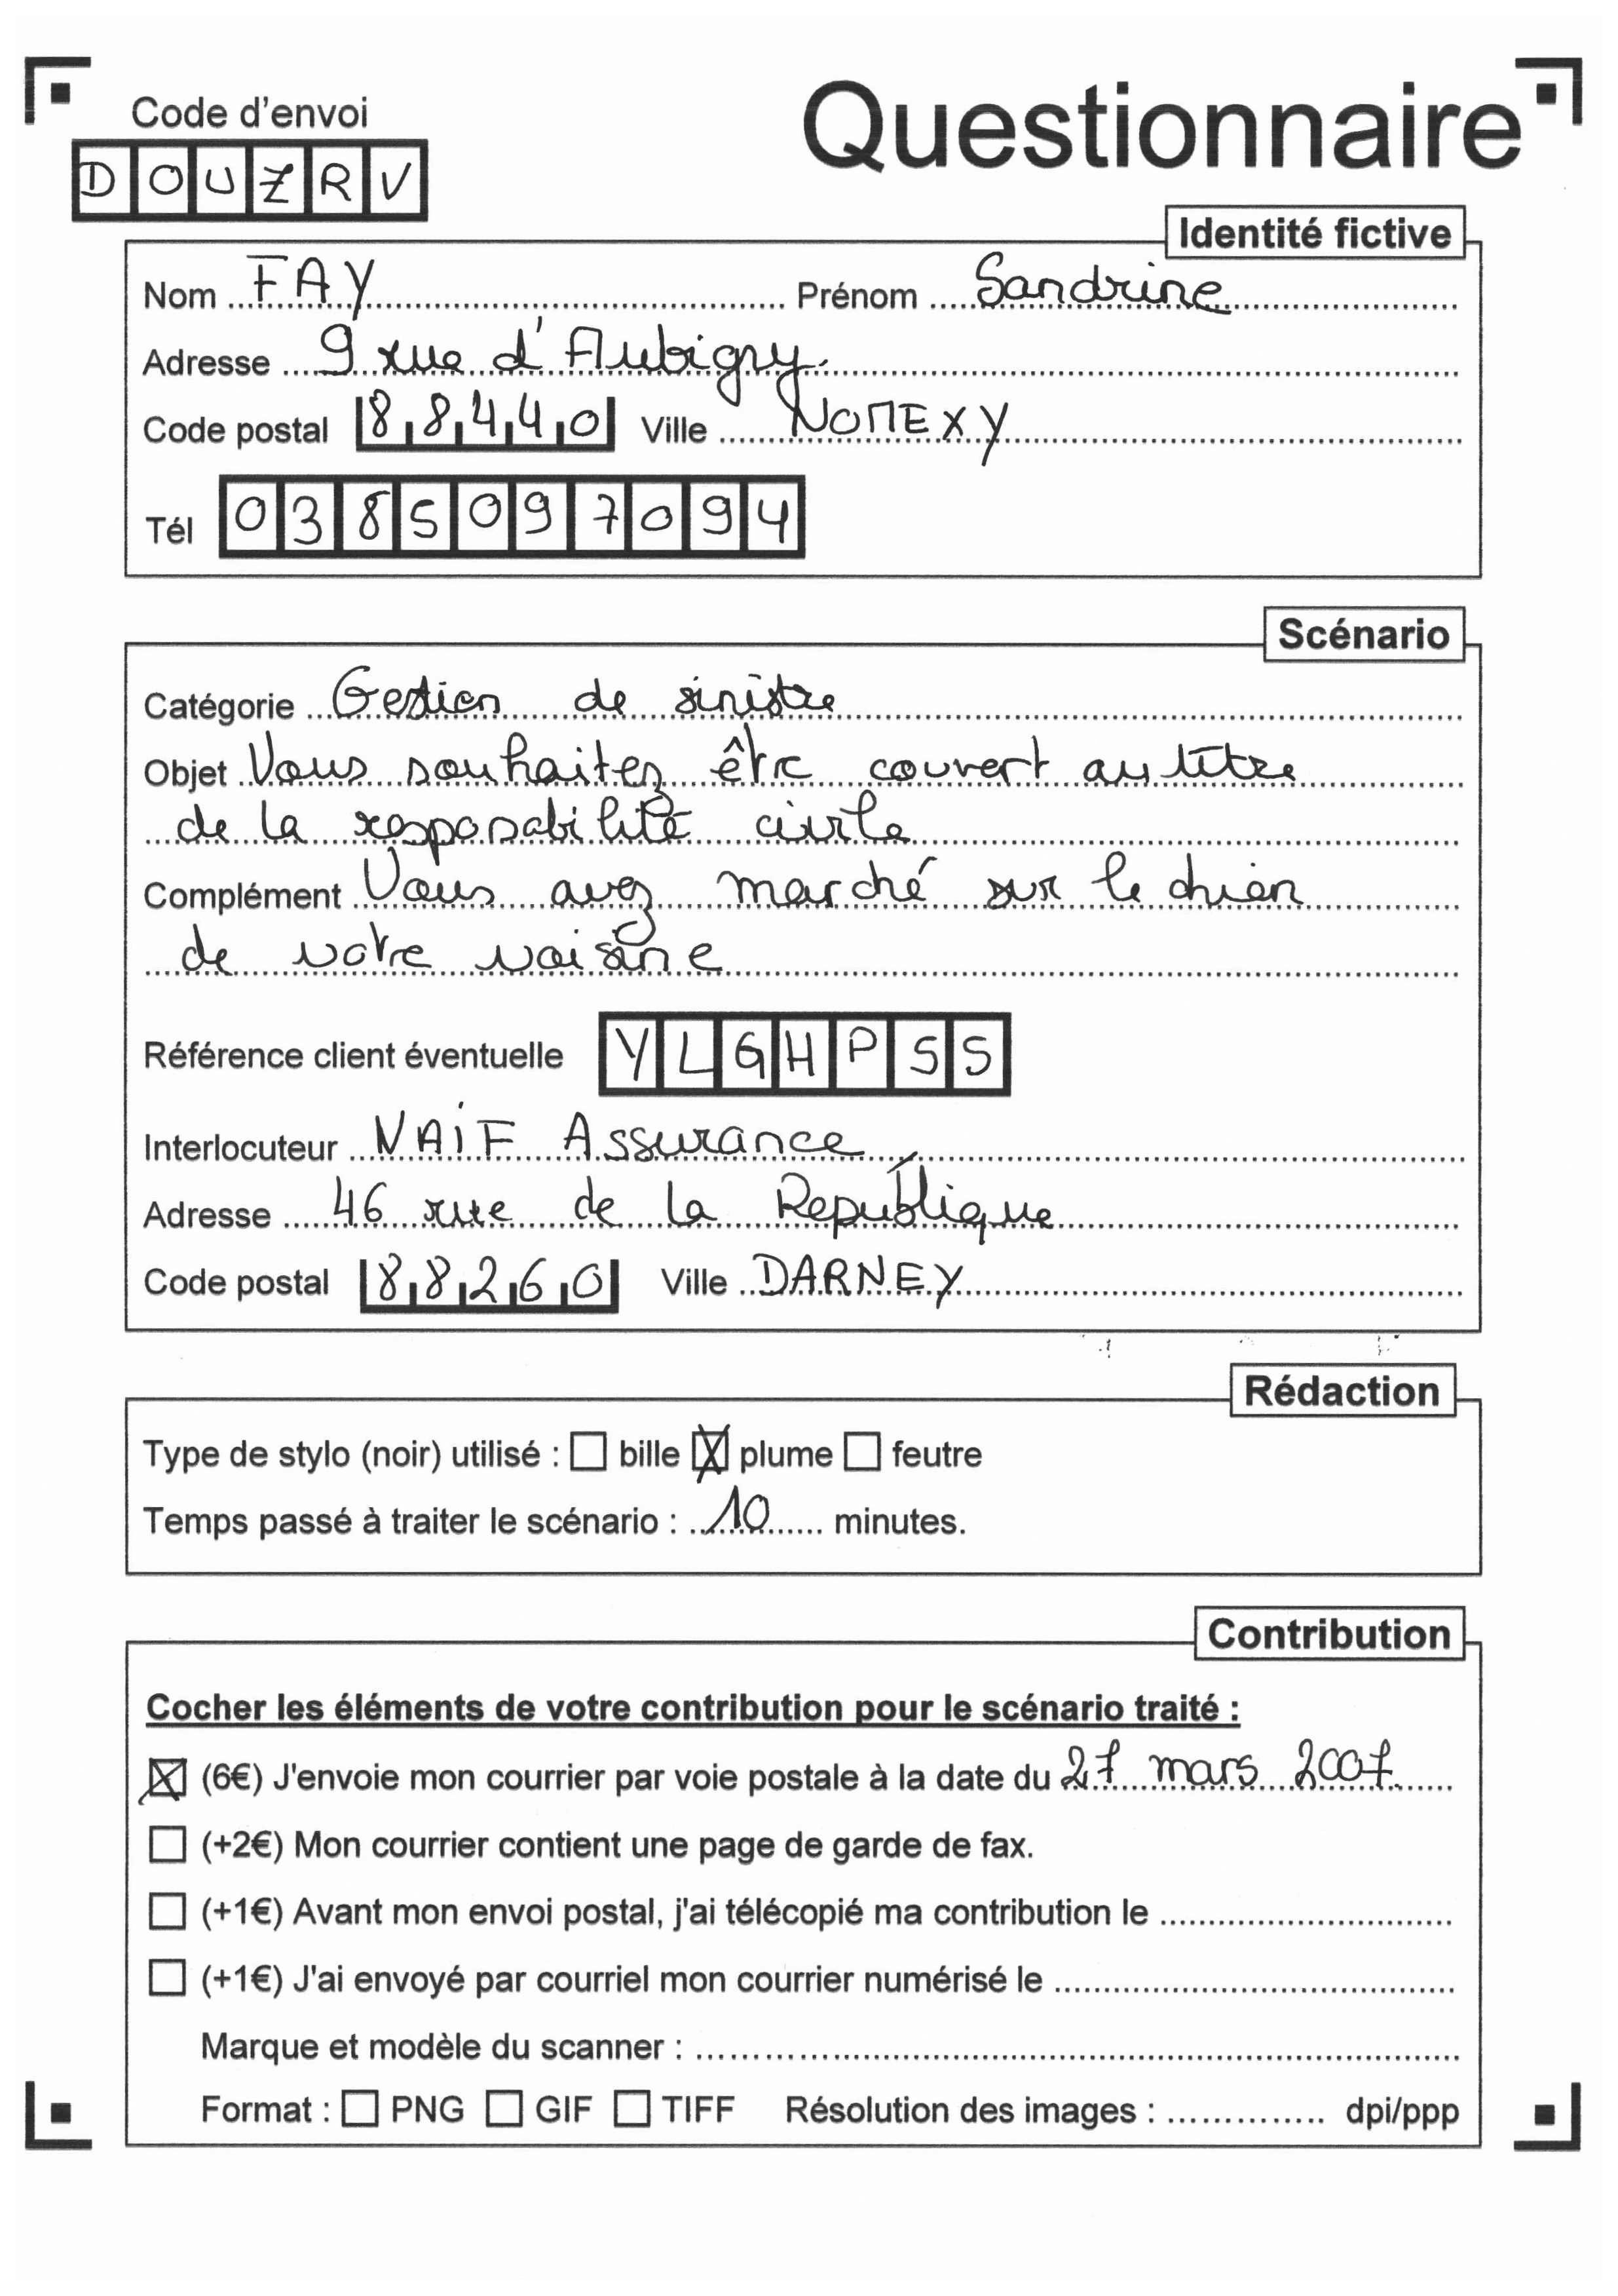 Code d'envoi
Questionnaire
DOUZRV
Identité fictive
Nom FAY Prénom Sandrine
Adresse 9 rue d'Aubigny
Code postal 88440 Ville NOMEXY
Tél 0385097094
Scénario
Catégorie Gestion de sinistre
Objet Vous souhaitez être couvert au titre
de la resposabilité civile
Complément Vous avez marché sur le chien
de votre voisine
Référence client éventuelle YLGHPSS
Interlocuteur NAiF Assurance
Adresse 46 rue de la République
Code postal 88260 Ville DARNEY
Rédaction
Type de stylo (noir) utilisé : ☐ bille ☒ plume ☐ feutre
Temps passé à traiter le scénario : 10 minutes.
Contribution
Cocher les éléments de votre contribution pour le scénario traité :
☒ (6€) J'envoie mon courrier par voie postale à la date du 27 mars 2007.
☐ (+2€) Mon courrier contient une page de garde de fax.
☐ (+1€) Avant mon envoi postal, j'ai télécopié ma contribution le
☐ (+1€) J'ai envoyé par courriel mon courrier numérisé le
Marque et modèle du scanner :
Format : ☐ PNG ☐ GIF ☐ TIFF Résolution des images : dpi/ppp